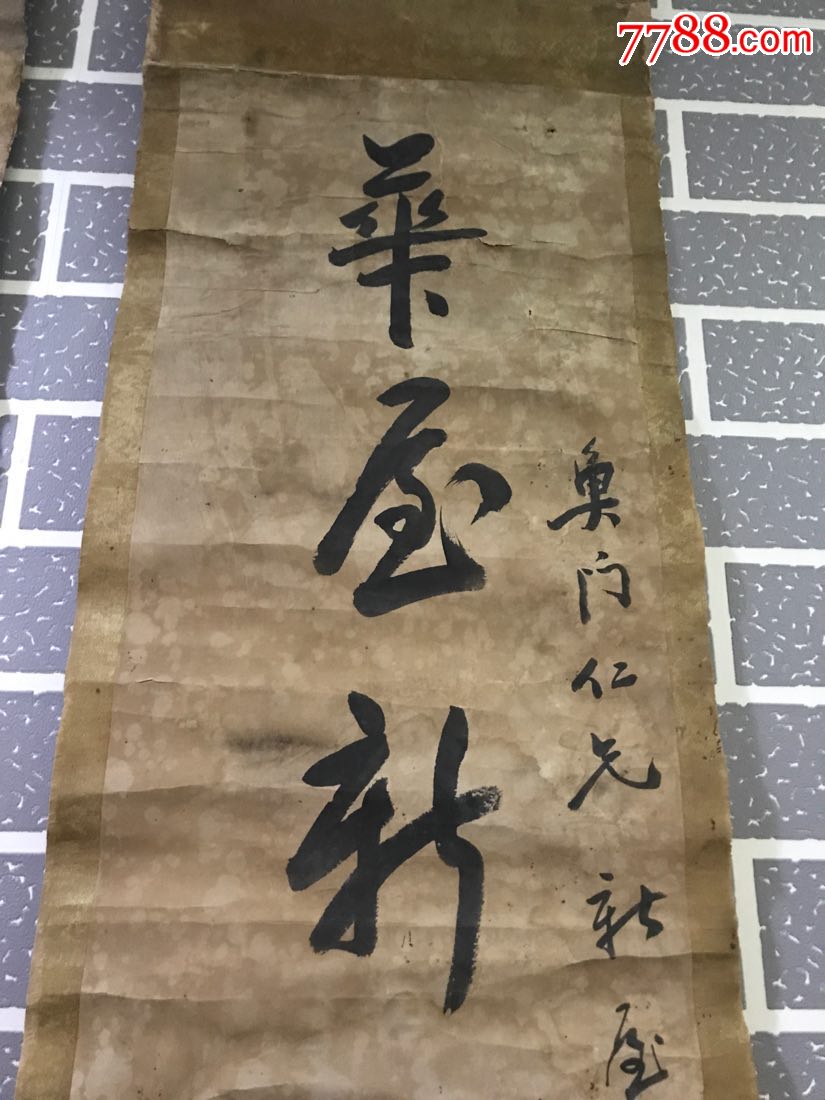 7788.com
華屋新
奐門仁兄新屋